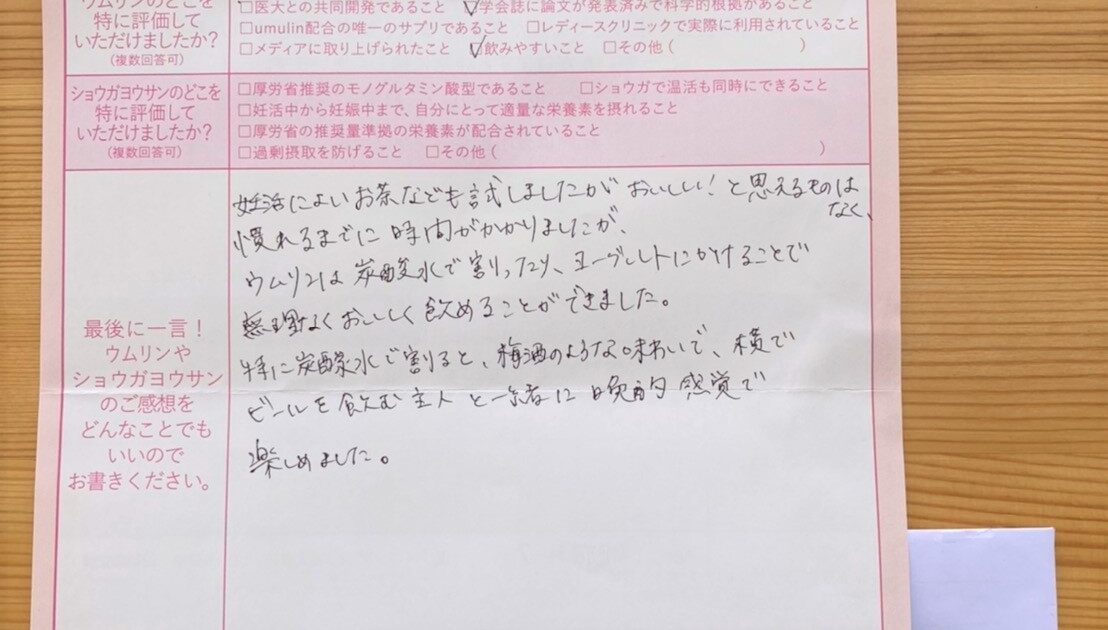 ウムリンのどこを
特に評価して
いただけましたか?
(複数回答可)
□医大との共同開発であること
□学会誌に論文が発表済みで科学的根拠があること
□umulin配合の唯一のサプリであること
□レディースクリニックで実際に利用されていること
□メディアに取り上げられたこと
□飲みやすいこと
□その他(
)
ショウガヨウサンのどこを
特に評価して
いただけましたか?
(複数回答可)
□厚労省推奨のモノグルタミン酸型であること
□ショウガで温活も同時にできること
□妊活中から妊娠中まで、自分にとって適量な栄養素を摂れること
□厚労省の推奨量準拠の栄養素が配合されていること
□過剰摂取を防げること
□その他(
)
最後に一言!
ウムリンや
ショウガヨウサン
のご感想を
どんなことでも
いいので
お書きください。
妊活によいお茶なども試しましたがおいしい!と思えるものは
なく、
慣れるまでに時間がかかりましたが、
ウムリンは炭酸水で割ったり、ヨーグルトにかけることで
無理なくおいしく飲めることができました。
特に炭酸水で割ると、梅酒のような味わいで、横で
ビールを飲む主人と一緒に晩酌感覚で
楽しめました。